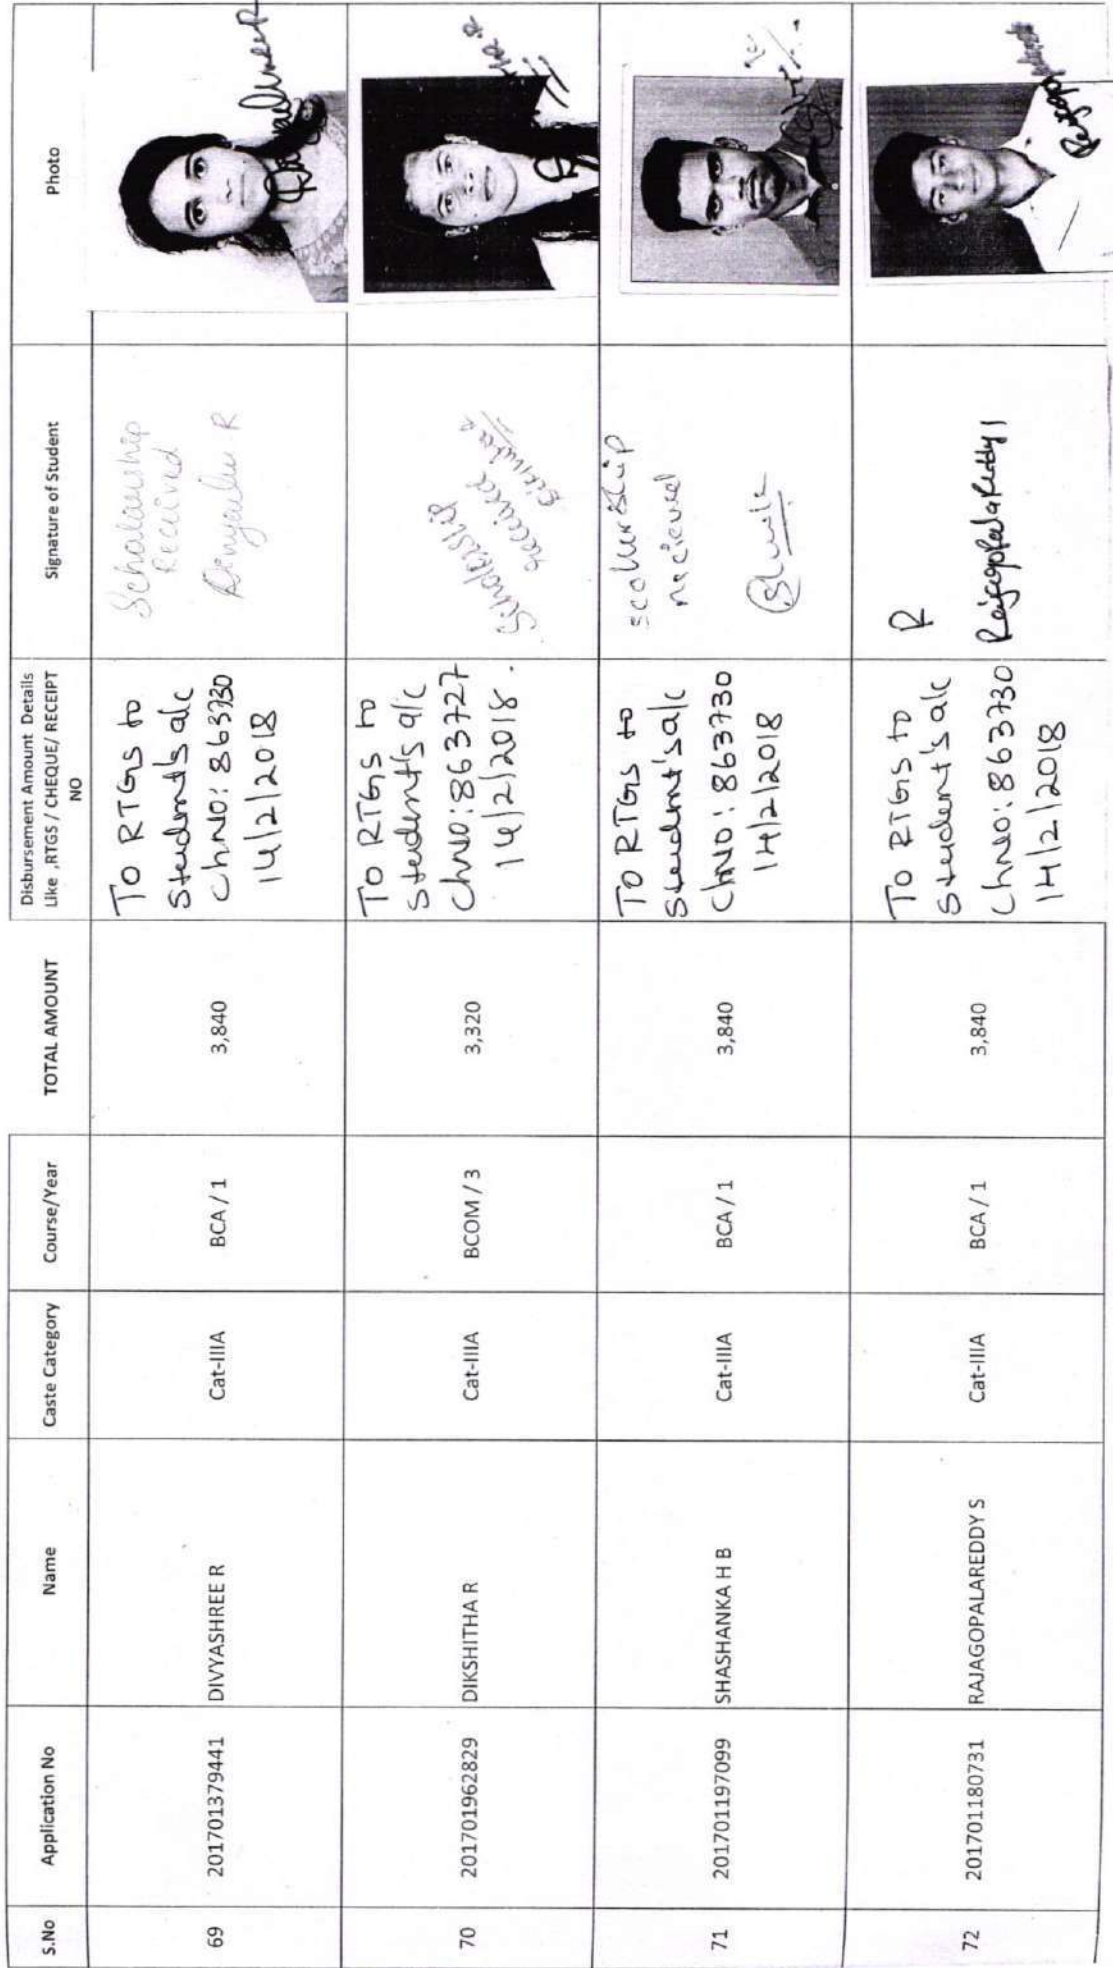 S.No Application No Name Caste Category Course/Year TOTAL AMOUNT Disbursement Amount Details Like ,RTGS / CHEQUE/ RECEIPT NO Signature of Student Photo
69 201701379441 DIVYASHREE R Cat-IIIA BCA / 1 3,840
To RTGS to
Student's a/c
Ch.NO: 863730
14/2/2018
Schalarship
Received
Divyashree R
70 201701962829 DIKSHITHA R Cat-IIIA BCOM / 3 3,320
To RTGS to
Student's a/c
Ch.No: 863727
14/2/2018.
received
71 201701197099 SHASHANKA H B Cat-IIIA BCA / 1 3,840
To RTGS to
Student's a/c
Ch.No: 863730
14/2/2018
recieved
72 201701180731 RAJAGOPALAREDDY S Cat-IIIA BCA / 1 3,840
To RTGS to
Student's a/c
Ch.No: 863730
14/2/2018
R
RajagopalaReddy